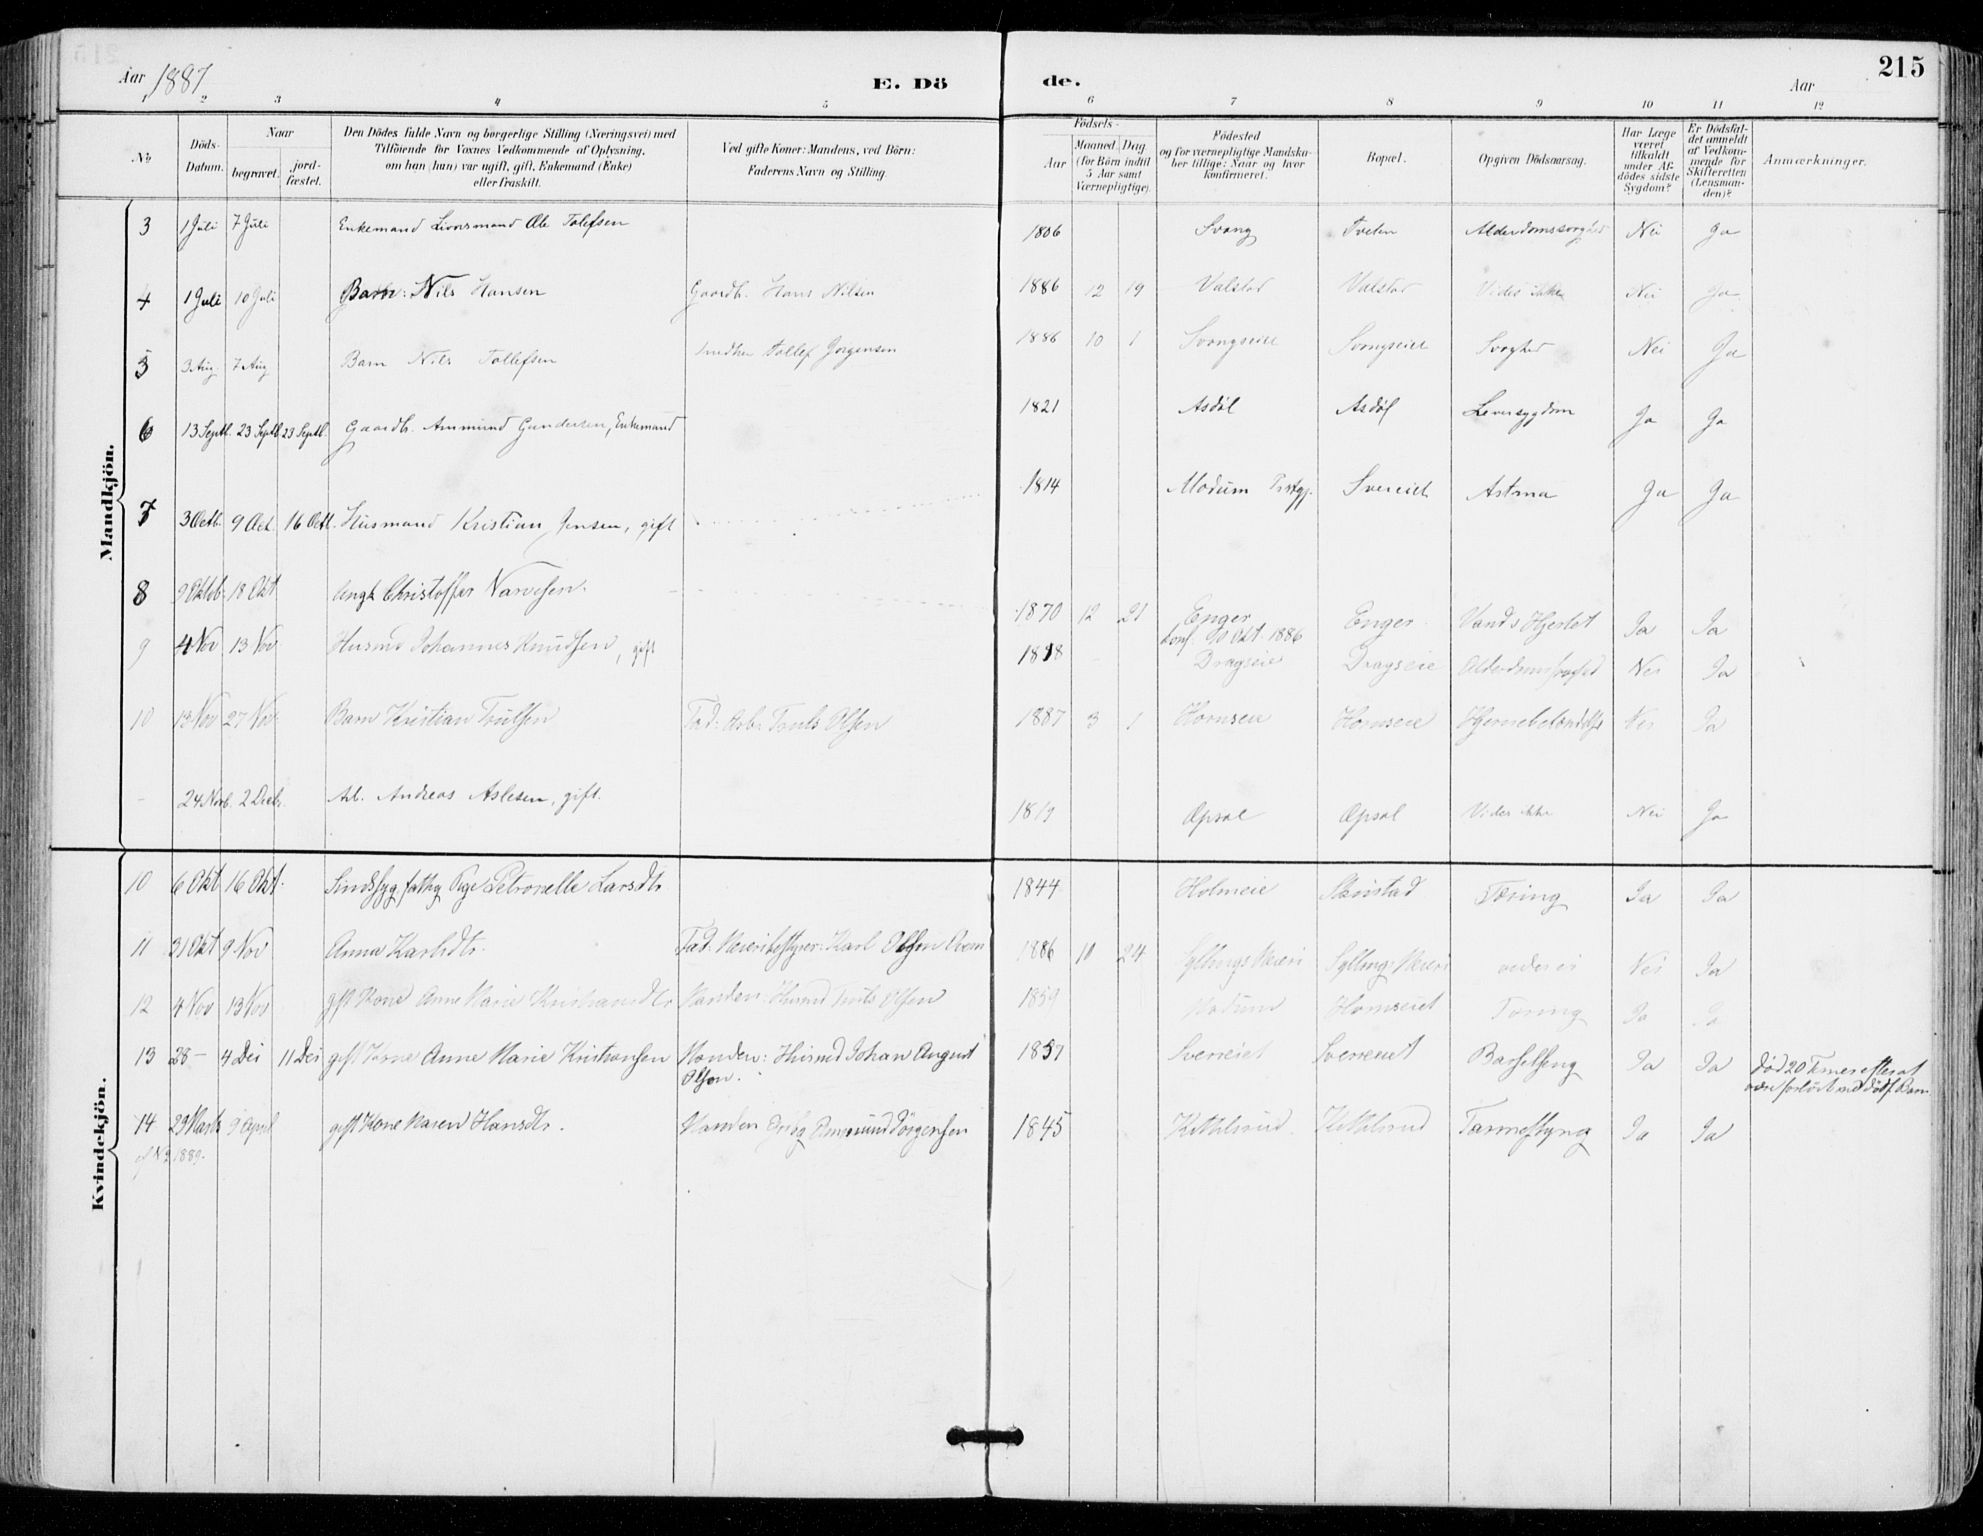 215
Aar 1887
E. Döde.
Aar
1 2 3 4 5 6 7 8 9 10 11 12
No
Döds-Datum.
Naar
begravet.
jord-fæstet.
Den Dödes fulde Navn og borgerlige Stilling (Næringsvei) med
Tilföiende for Voxnes Vedkommende af Oplysning,
om han (hun) var ugift, gift, Enkemand (Enke)
eller fraskilt.
Ved gifte Koner: Mandens, ved Börn:
Faderens Navn og Stilling.
Födsels-
Aar
Maaned Dag
(for Börn indtil
5 Aar samt
Værnepligtige).
Födested
og for værnepligtige Mandska-
ber tillige: Naar og hvor
konfirmeret.
Bopæl.
Opgiven Dödsaarsag.
Har Læge
været
tilkaldt
under Af-
dödes sidste
Sygdom?
Er Dödsfal-
det anmeldt
af Vedkom-
mende for
Skifteretten
(Lensman-
den)?
Anmærkninger.
Mandkjön.
3 1 Juli 7 Juli Enkemand Ole Tolefsen 1806 Svang Tveten Nei Ja
4 1 Juli 10 Juli Barn: Nils Hansen Gaardb. Hans Nilsen 1886 12 19 Valstad Valstad Vides ikke Nei Ja
5 3 Aug. 7 Aug Barn Nils Tollefsen Tollef Jorgensen 1886 10 1 Svangseiet Svangseiet Svaghed Nei Ja
6 13 Septb. 23 Septb 23 Septb. Gaardb. Ammund Gundersen, Enkemand 1821 Asdøl Asdøl Leversygdom Ja Ja
7 3 Octb. 9 Oct. 16 Octb. Husmand Kristian Jensen, gift 1814 Modum Prstgj. Svereiet Astma Ja Ja
8 9 Oktob. 18 Okt Ungk Christoffer Narvesen. 1870 12 21 Enger Enger Vand i Hjertet Ja Ja
konf. 10 Okt. 1886
9 4 Nov 13 Nov Husmd Johannes Knudsen, gift 1818 Dragseie Dragseie Alderdomssvaghed Nei Ja
10 13 Nov 27 Nov. Barn Kristian Trulsen Fad: Arb. Truls Olsen 1887 3 1 Hornseie Hornseie Hjernebetændelse Nei Ja
- 24 Novb. 2 Decbr. Arb. Andreas Aslesen, gift. 1819 Opsal Opsal Vides ikke Nei Ja
Kvindekjön.
10 6 Okt 16 Okt. Sindssyg fattig Pige Petronelle Larsdtr 1844 Holmeie Skinstad Tæring Ja Ja
11 31 Okt 9 Nov Anna Karlsdtr. Fad: Meieribestyrer: Karl Olsen 1886 10 24 Syllings Meieri Syllings Meieri vedes ei Nei Ja
12 4 Nov 13 Nov gift Kone Anne Marie Kristiansdtr Manden: Husmd Truls Olsen 1859 Modum Hornseiet Tæring Ja Ja
13 28 – 4 Dec 11 Dec gift Kone Anne Marie Kristiansen Manden: Husmd Johan August 1857 Svereiet Svereiet Barselseng Ja Ja Død 20 Timer efter at
Olsen. være forløst med dødf. Barn
14 29 Marts 9 April gift Kone Maren Hansdtr. Manden Ammund Jörgensen 1845 Kittilsrud Kittilsrud Tarmeslyng Ja Ja
cf No 2 1889.